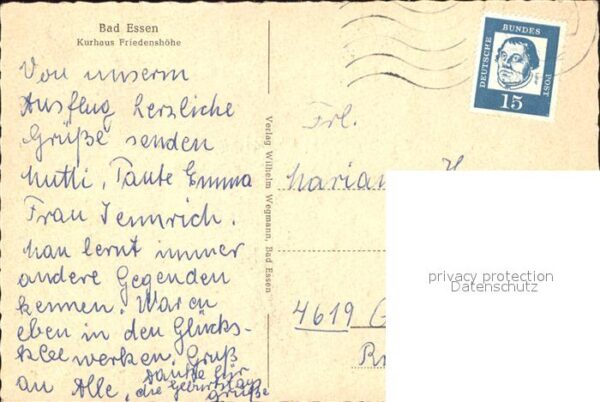 Bad Essen
Kurhaus Friedenshöhe
Von unserm
Ausflug herzliche
Grüße senden
Mutti, Tante Emma
Frau Jennrich.
Man lernt immer
andere Gegenden
kennen. Waren
eben in den Glücks-
klee werken. Gruß
an Alle, Danke für
die Geburtstags
grüße
Verlag Wilhelm Wegmann, Bad Essen
DEUTSCHE BUNDES POST
15
Frl.
4619
privacy protection
Datenschutz